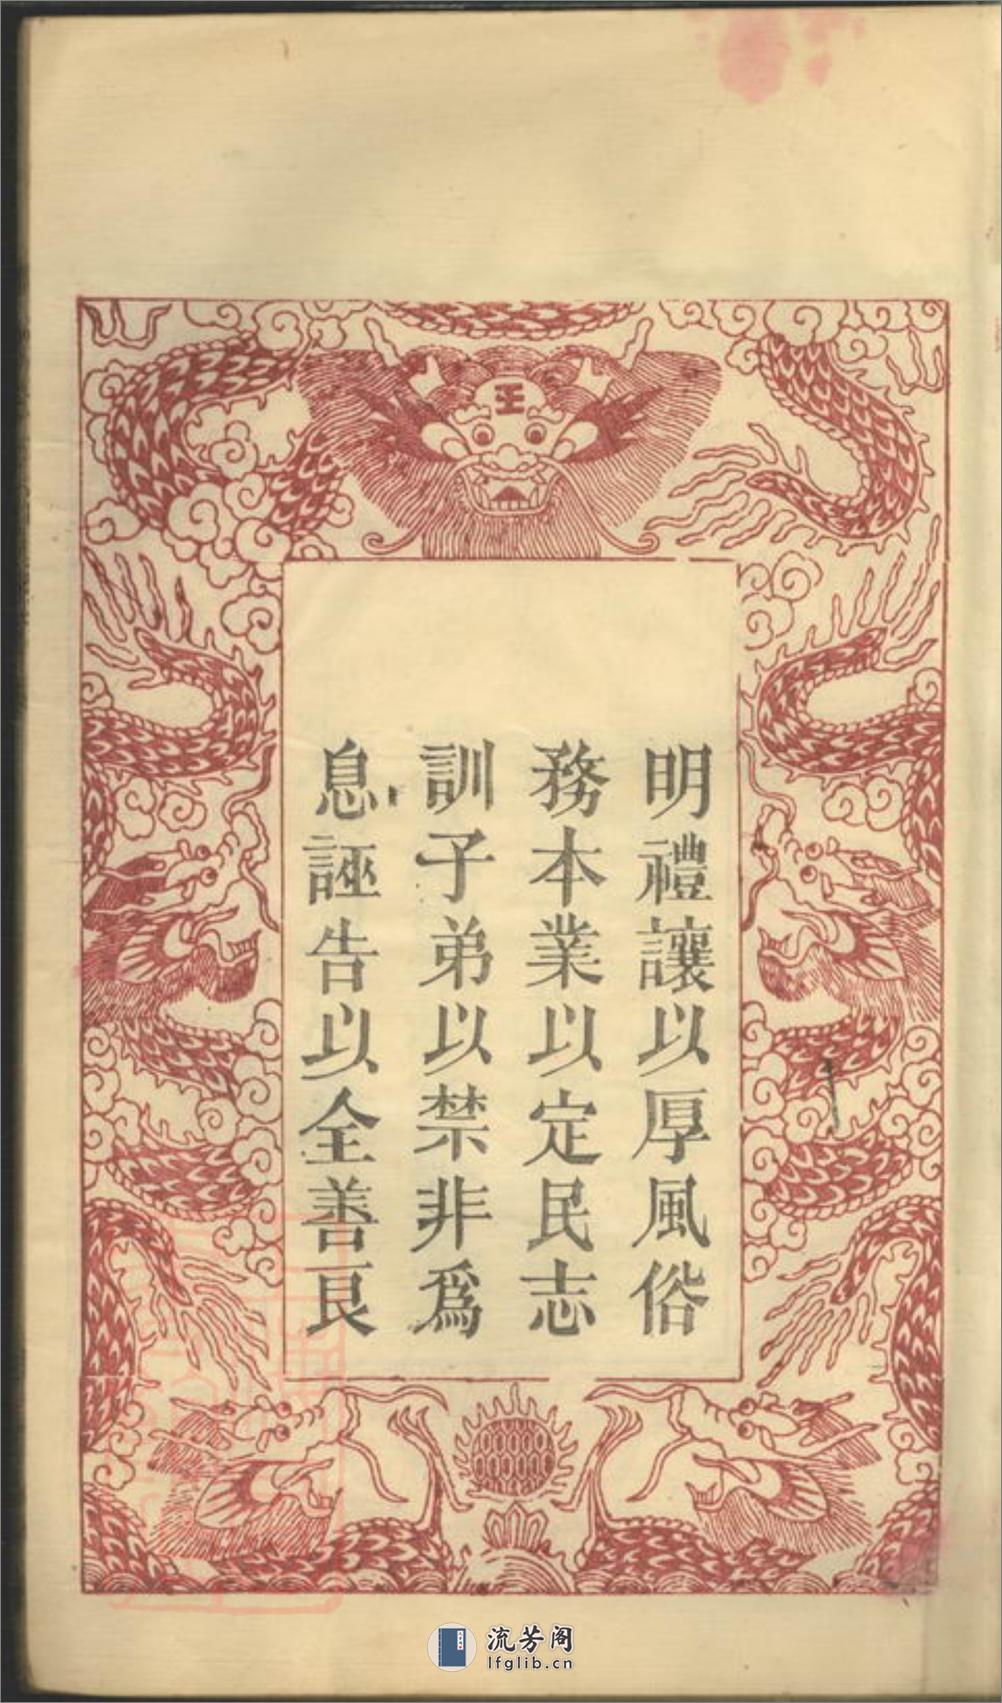 明禮讓以厚風俗
務本業以定民志
訓子弟以禁非爲
息誣告以全善良
王
流芳阁
lfglib.cn